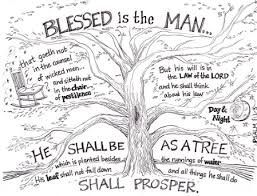 BLESSED is the MAN...
that goeth not
in the counsel
of wicked men...
and sitteth not
in the chair
of pestilence
But his will is in
the LAW of the LORD
and he shall think
about his law
Day &
Night
PSALM 1:1-3
HE SHALL BE AS A TREE
which is planted besides
the runnings of water
His leaf shall not fall down
and all things he shall do
SHALL PROSPER.